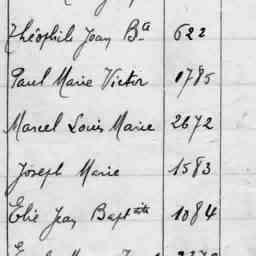 Théophile Jean Bª 622
Paul Marie Victor 1785
Marcel Louis Marie 2672
Joseph Marie 1583
Elie Jean Baptiste 1084